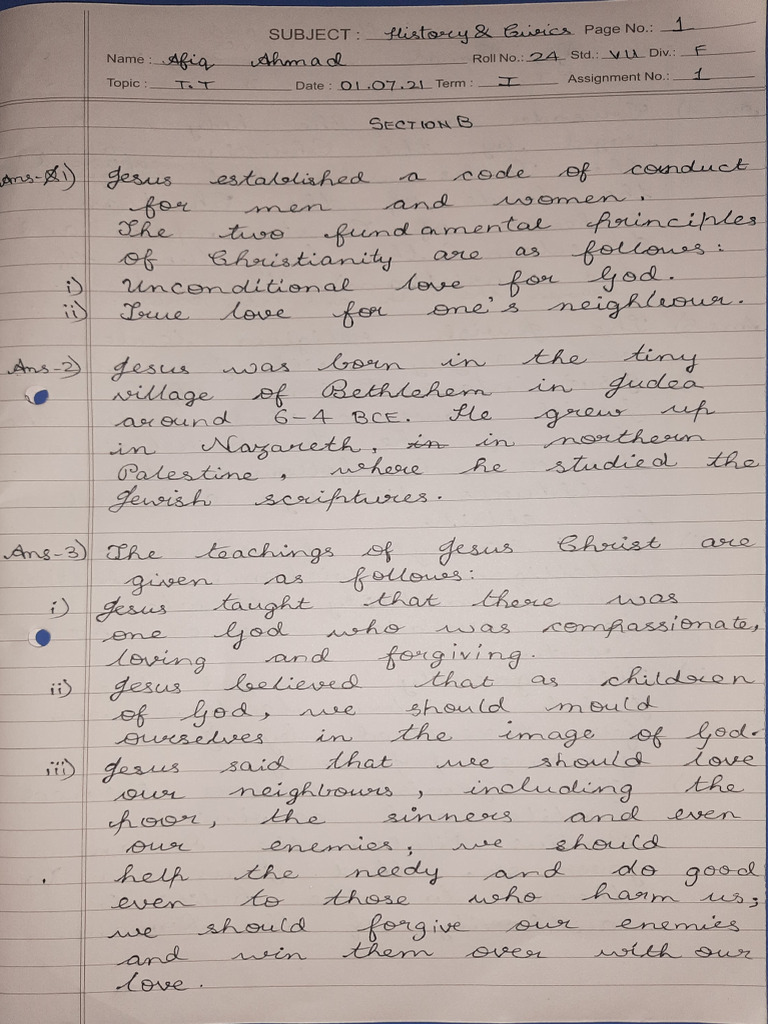 SUBJECT : History & Civics Page No.: 1
Name : Afiq Ahmad Roll No.: 24 Std.: VII Div.: F
Topic : T.T Date : 01.07.21 Term : I Assignment No.: 1
SECTION B
Ans-1) Jesus established a code of conduct
for men and women.
The two fundamental principles
of Christianity are as follows:
i) Unconditional love for God.
ii) True love for one's neighbour.
Ans-2) Jesus was born in the tiny
village of Bethlehem in Judea
around 6-4 BCE. He grew up
in Nazareth, in in northern
Palestine, where he studied the
Jewish scriptures.
Ans-3) The teachings of Jesus Christ are
given as follows:
i) Jesus taught that there was
one God who was compassionate,
loving and forgiving.
ii) Jesus believed that as children
of God, we should mould
ourselves in the image of God.
iii) Jesus said that we should love
our neighbours, including the
poor, the sinners and even
our enemies; we should
help the needy and do good
even to those who harm us;
we should forgive our enemies
and win them over with our
love.